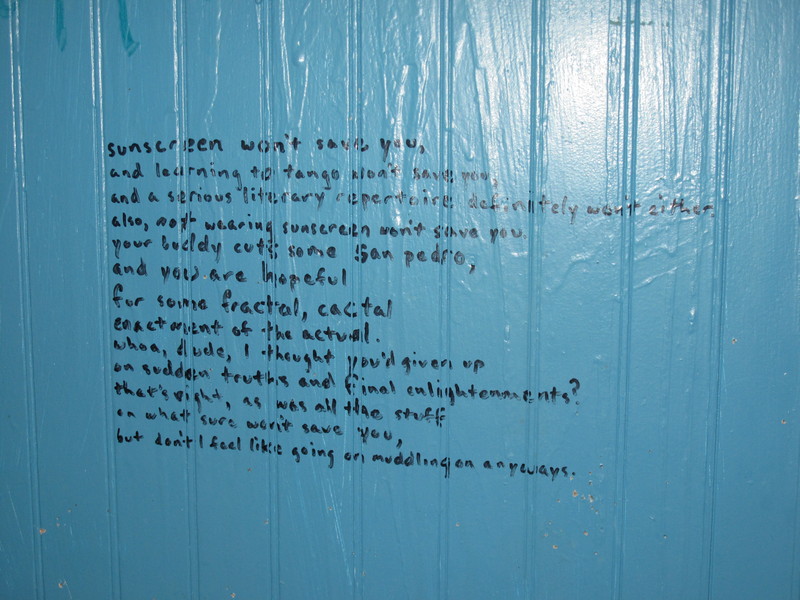 sunscreen won't save you,
and learning to tango won't save you,
and a serious literary repertoire definitely won't either.
also, not wearing sunscreen won't save you.
your buddy cuts some San pedro,
and you are hopeful
for some fractal, cactal
enactment of the actual.
whoa, dude, I thought you'd given up
on sudden truths and final enlightenments?
that's right, as was all the stuff
on what sure won't save you,
but don't I feel like going on muddling on anyways.